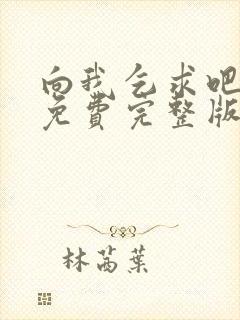 向我乞求吧
免费完整版
林芮葉